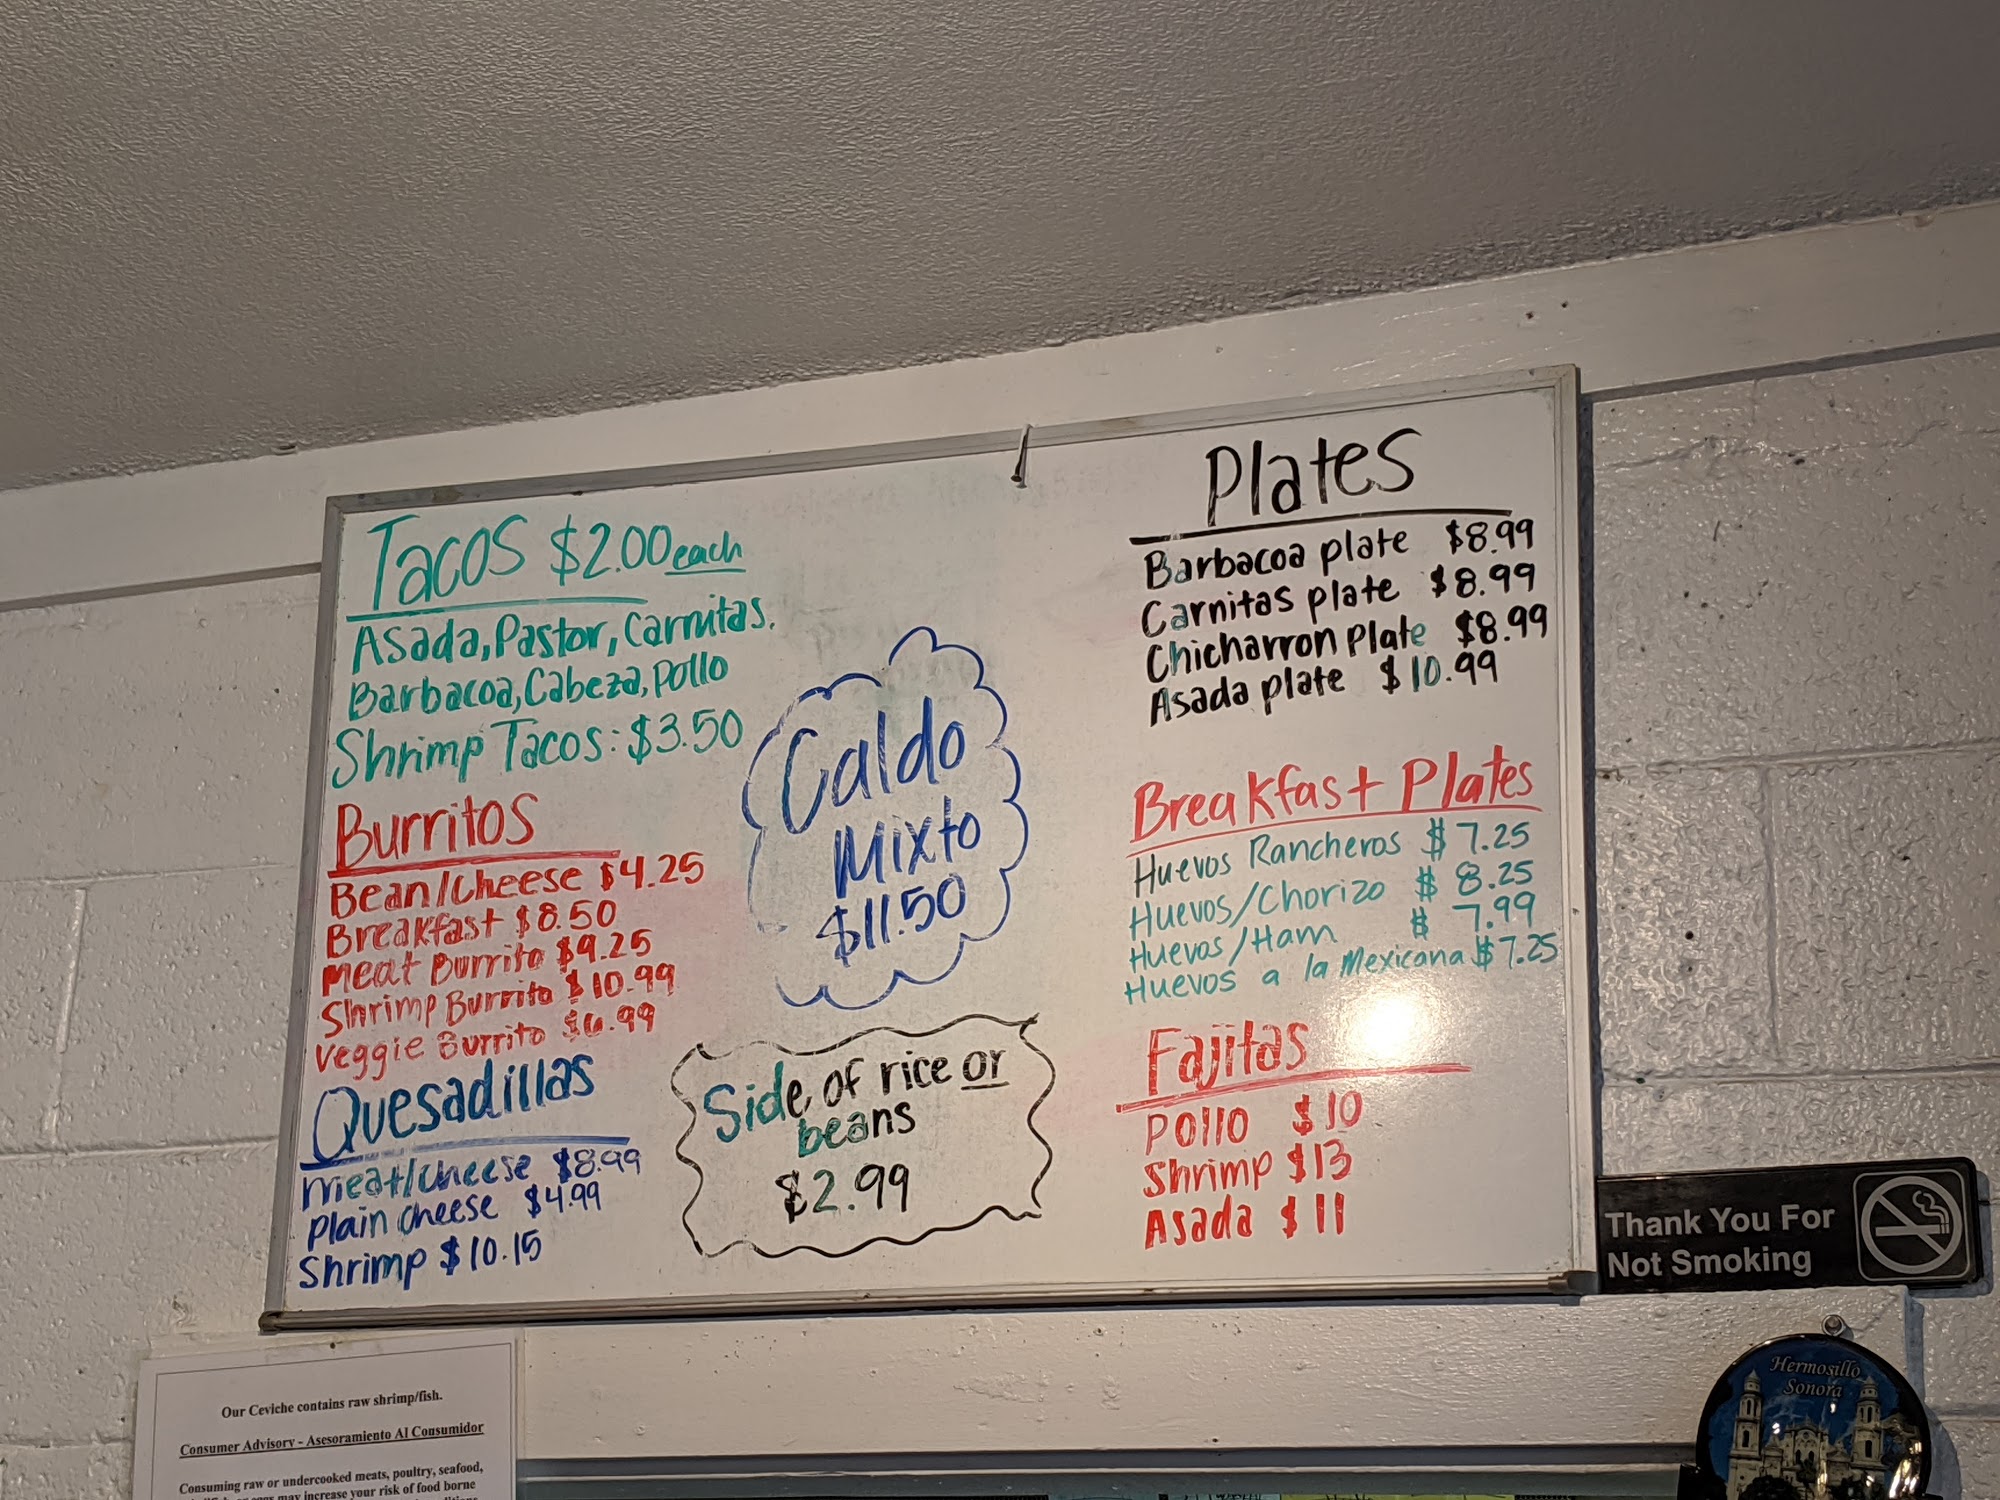 Tacos $2.00 each
Asada, Pastor, Carnitas,
Barbacoa, Cabeza, Pollo
Shrimp Tacos: $3.50
Burritos
Bean/Cheese $4.25
Breakfast $8.50
Meat Burrito $9.25
Shrimp Burrito $10.99
Veggie Burrito $6.99
Quesadillas
Meat/Cheese $8.99
Plain cheese $4.99
Shrimp $10.15
Caldo
Mixto
$11.50
Side of rice or
beans
$2.99
Plates
Barbacoa plate $8.99
Carnitas plate $8.99
Chicharron Plate $8.99
Asada plate $10.99
Breakfast Plates
Huevos Rancheros $7.25
Huevos/Chorizo $8.25
Huevos/Ham $7.99
Huevos a la Mexicana $7.25
Fajitas
Pollo $10
Shrimp $13
Asada $11
Thank You For
Not Smoking
Our Ceviche contains raw shrimp/fish.
Consumer Advisory - Asesoramiento Al Consumidor
Consuming raw or undercooked meats, poultry, seafood,
may increase your risk of food borne
Hermosillo
Sonora